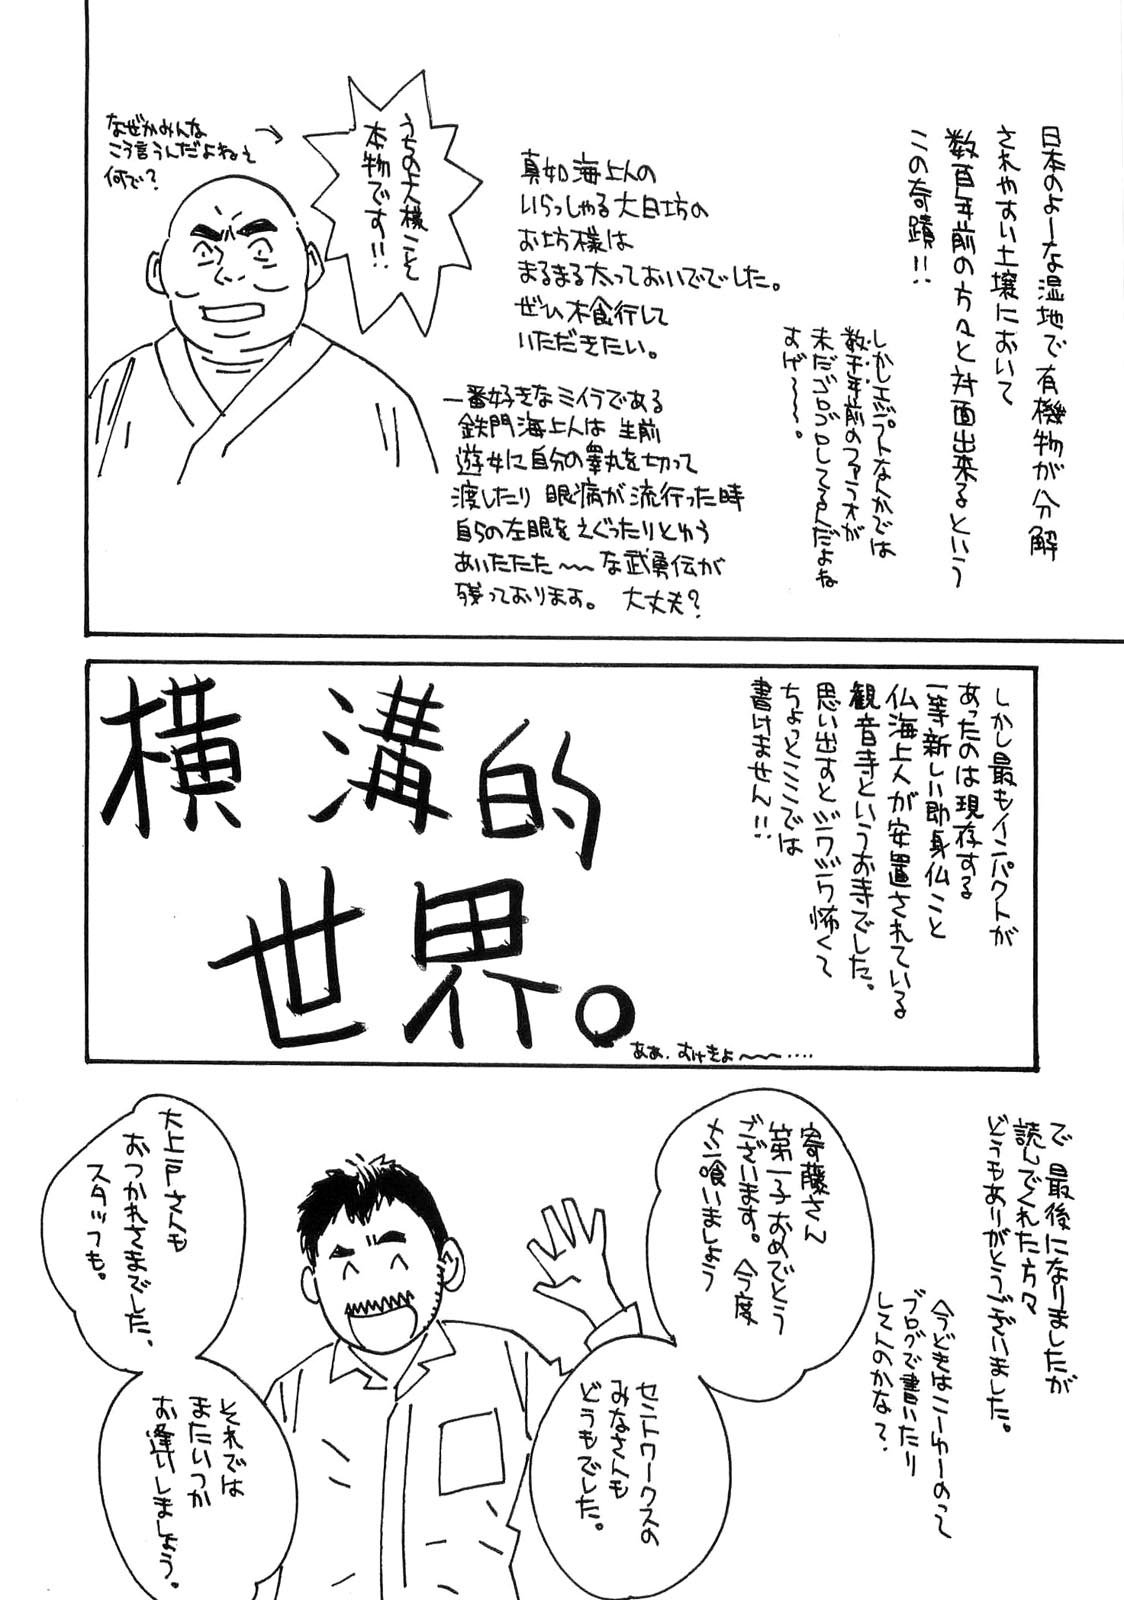 日本のよーな湿地で有機物が分解
されやすい土壌において
数百年前の方々と対面出来るという
この奇蹟!!
しかしエジプトなんかでは
数千年前のファラオが
未だゴロゴロしてるんだよね
すげ〜〜〜。
真如海上人の
いらっしゃる大日坊の
お坊様は
まるまる太っておいででした。
ぜひ木食行して
いただきたい。
うちの大様こそ
本物です!!
なぜかみんな
こう言うんだよねぇ
何で?
一番好きなミイラである
鉄門海上人は 生前
遊女に自分の睾丸を切って
渡したり 眼病が流行った時
自らの左眼をえぐったりとゆう
あいたたた〜〜な武勇伝が
残っております。 大丈夫?
しかし最もインパクトが
あったのは現存する
一等新しい即身仏こと
仏海上人が安置されている
観音寺というお寺でした。
思い出すとジワジワ怖くて
ちょっとここでは
書けません!!
横溝的
世界。
ああ、むけきよ〜〜‥‥
で 最後になりましたが
読んでくれた方々
どうもありがとうございました。
今どきはこーゆーのって
ブログで書いたり
してんのかな?
寄藤さん
第一子おめでとう
ございます。今度
メシ喰いましょう
セントワークスの
みなさんも
どうもでした。
大上戸さんも
おつかれさまでした、
スタッフも。
それでは
またいつか
お逢いしましょう。